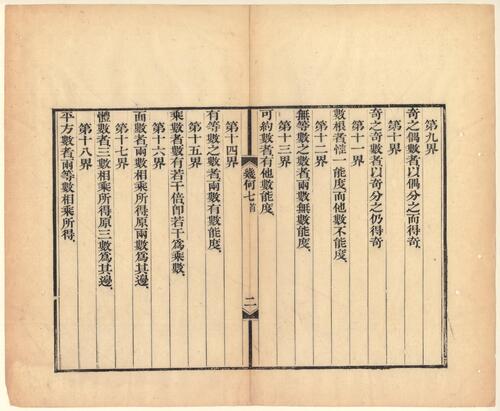 第九界
奇之偶數者以偶分之而得奇
第十界
奇之奇數者以奇分之仍得奇
第十一界
數根者惟一能度而他數不能度
第十二界
無等數之數者兩數無數能度
第十三界
可約數者有他數能度
幾何七首
二
第十四界
有等數之數者兩數有數能度
第十五界
乘數者數有若干倍卽若干爲乘數
第十六界
面數者兩數相乘所得原兩數爲其邊
第十七界
體數者三數相乘所得原三數爲其邊
第十八界
平方數者兩等數相乘所得